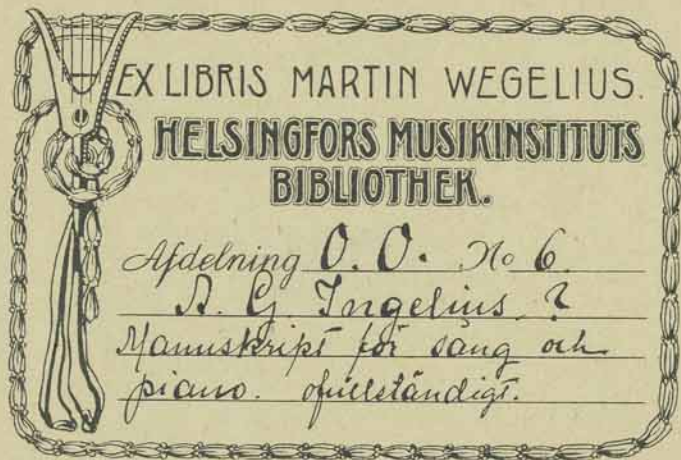 EX LIBRIS MARTIN WEGELIUS.
HELSINGFORS MUSIKINSTITUTS
BIBLIOTHEK.
Afdelning O. O. No 6.
A. G. Ingelius ?
Manuskript för sång och
piano. ofullständigt.